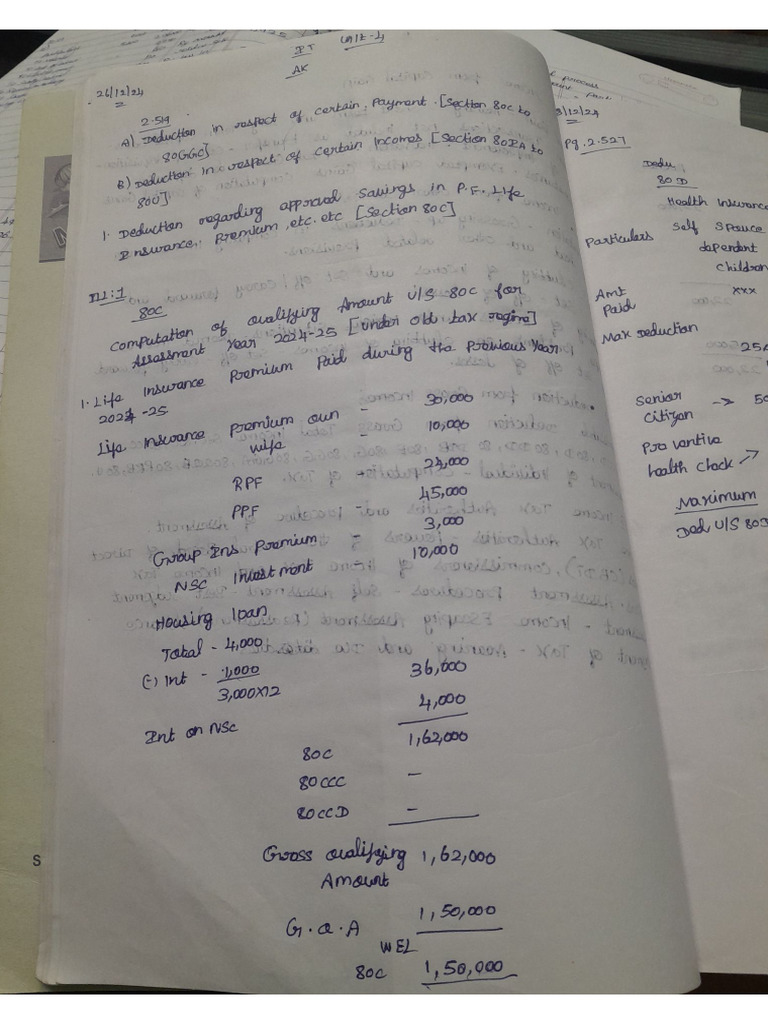 IT
UNIT-4
AK
26/12/24
2.519
A) Deduction in respect of certain Payment. [Section 80C to
80GGC]
B) Deduction in respect of certain Incomes [Section 80IA to
80U]
1. Deduction regarding approved savings in P.F. Life
Insurance, Premium, etc. etc [Section 80C]
Ill:1
80C
Computation of Qualifying Amount U/S 80C for
Assessment Year 2024-25 [under old tax regime]
1. Life Insurance Premium Paid during the Previous Year
2024-25
Life Insurance Premium own - 30,000
wife - 10,000
RPF - 24,000
PPF - 45,000
Group Ins Premium - 3,000
NSC Investment 10,000
Housing loan
Total - 4,000
(-) Int - 1,000
3,000x12 36,000
Int on NSC 4,000
80C 1,62,000
80CCC -
80CCD -
Gross Qualifying 1,62,000
Amount
G.Q.A 1,50,000
WEL
80C 1,50,000
S
3/12/24
Pg. 2.527
Dedu
80D
Health Insurance
Particulars Self Spouce
dependent
children
Amt xxx
Paid
Max deduction
Senior -> 50
Citizen
Preventive
health check
Maximum
Ded U/S 80D